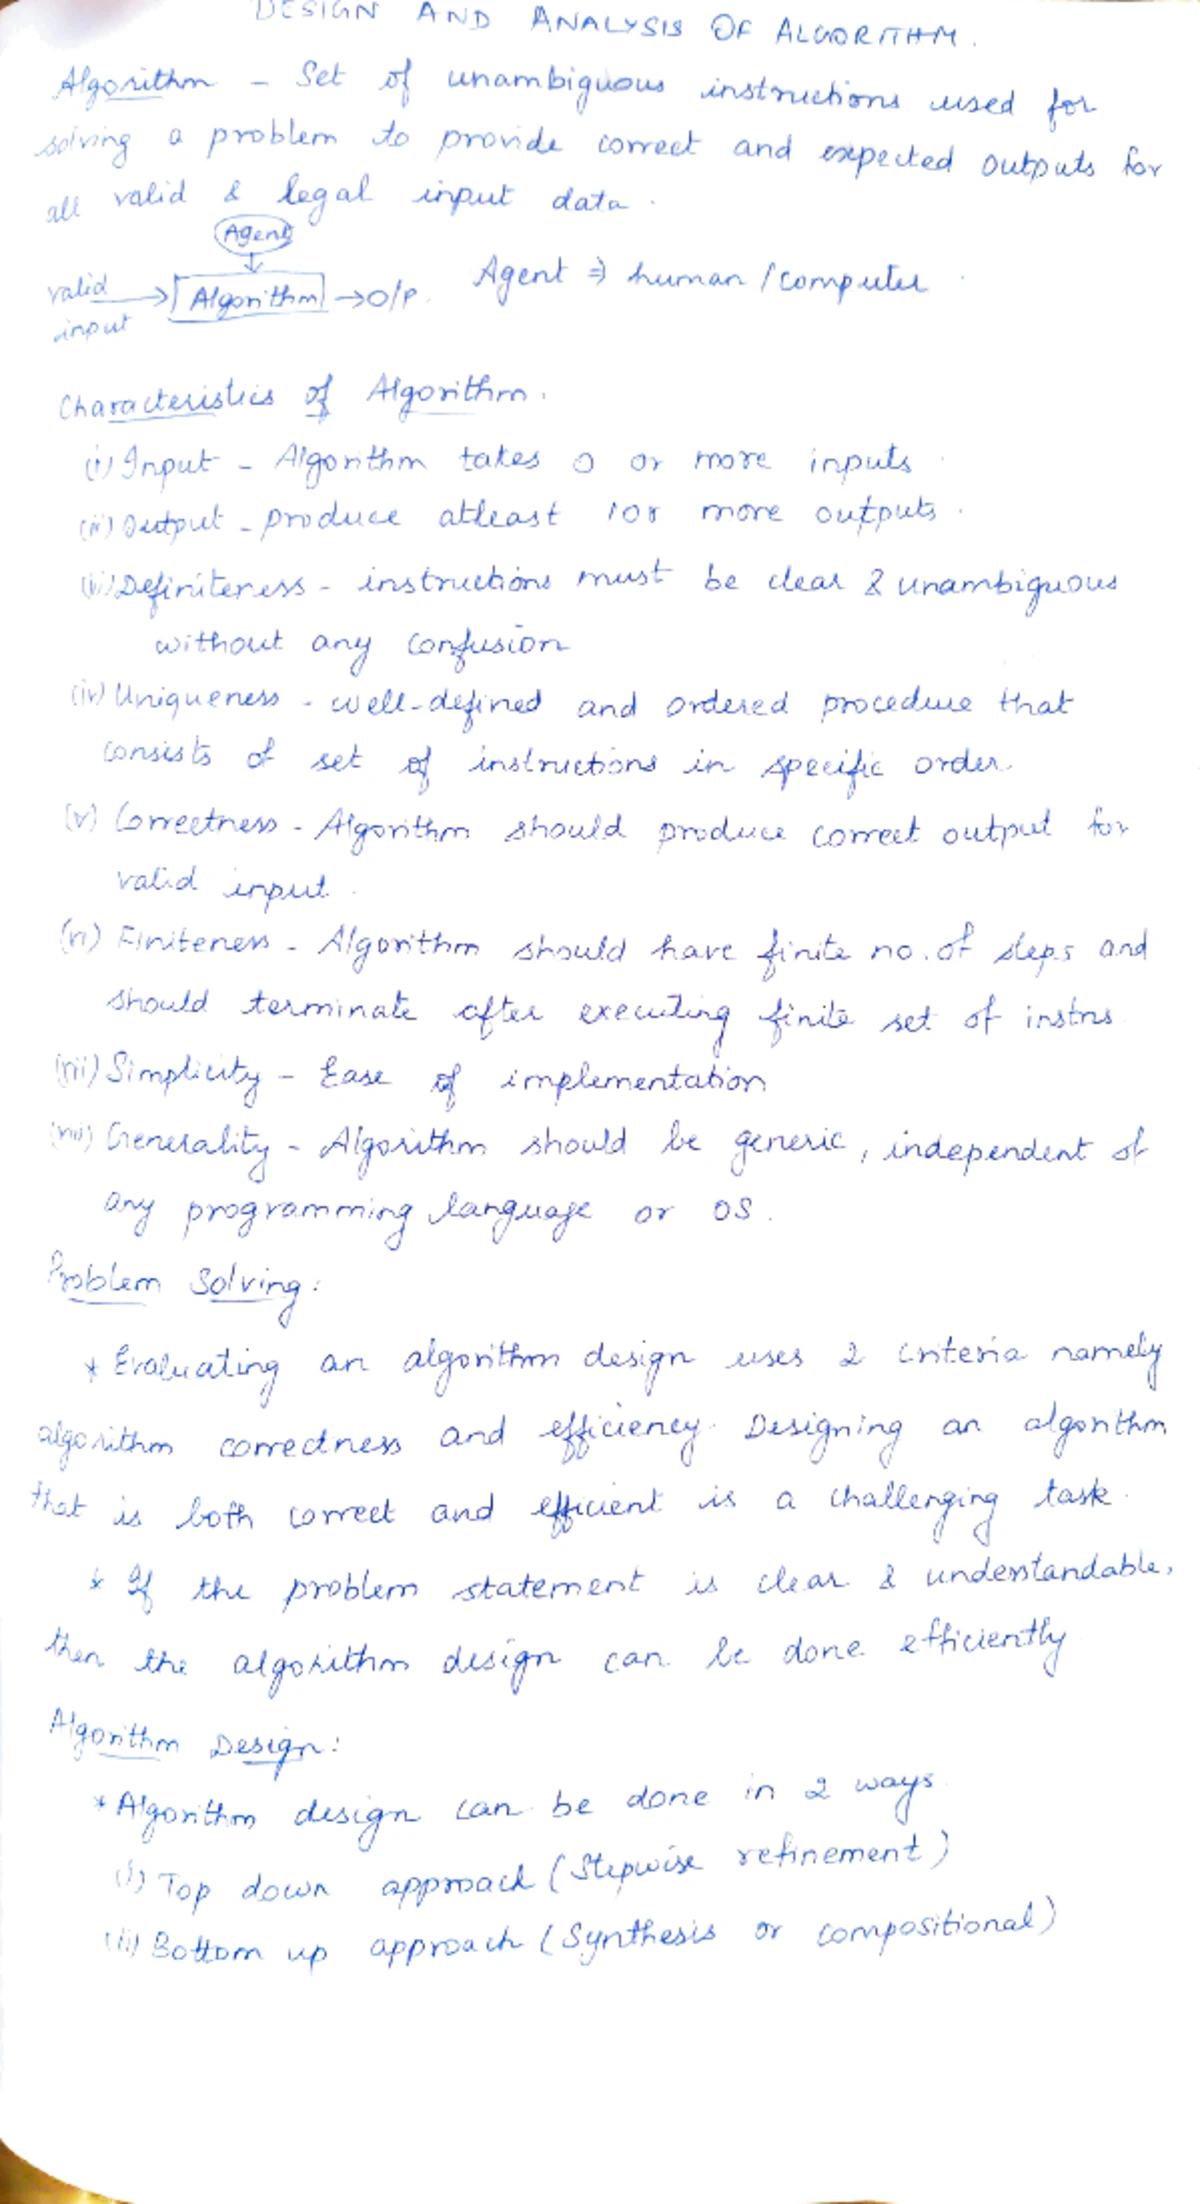 DESIGN AND ANALYSIS OF ALGORITHM.
Algorithm - Set of unambiguous instructions used for
solving a problem to provide correct and expected outputs for
all valid & legal input data.
Agent
valid input → Algorithm → O/P. Agent ⇒ human / computer
Characteristics of Algorithm.
(i) Input - Algorithm takes 0 or more inputs
(ii) Output - produce atleast 1 or more outputs.
(iii) Definiteness - instructions must be clear & unambiguous
without any confusion
(iv) Uniqueness - well-defined and ordered procedure that
consists of set of instructions in specific order.
(v) Correctness - Algorithm should produce correct output for
valid input.
(vi) Finiteness - Algorithm should have finite no. of steps and
should terminate after executing finite set of instrns
(vii) Simplicity - Ease of implementation
(viii) Generality - Algorithm should be generic, independent of
any programming language or OS.
Problem Solving:
* Evaluating an algorithm design uses 2 criteria namely
algorithm correctness and efficiency. Designing an algorithm
that is both correct and efficient is a challenging task.
* If the problem statement is clear & understandable,
then the algorithm design can be done efficiently
Algorithm Design:
* Algorithm design can be done in 2 ways
(i) Top down approach (Stepwise refinement)
(ii) Bottom up approach (Synthesis or compositional)